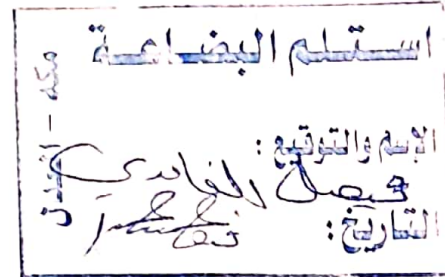 استلم البضاعة
الإسم والتوقيع :
فيصل الغامدي
التاريخ :
مكة -